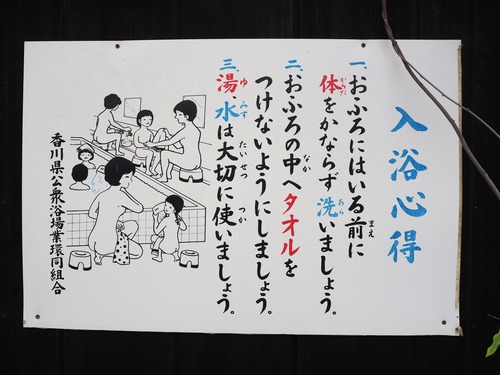 入浴心得
一、おふろにはいる前に
体をかならず洗いましょう。
二、おふろの中へタオルを
つけないようにしましょう。
三、湯水は大切に使いましょう。
香川県公衆浴場業環同組合